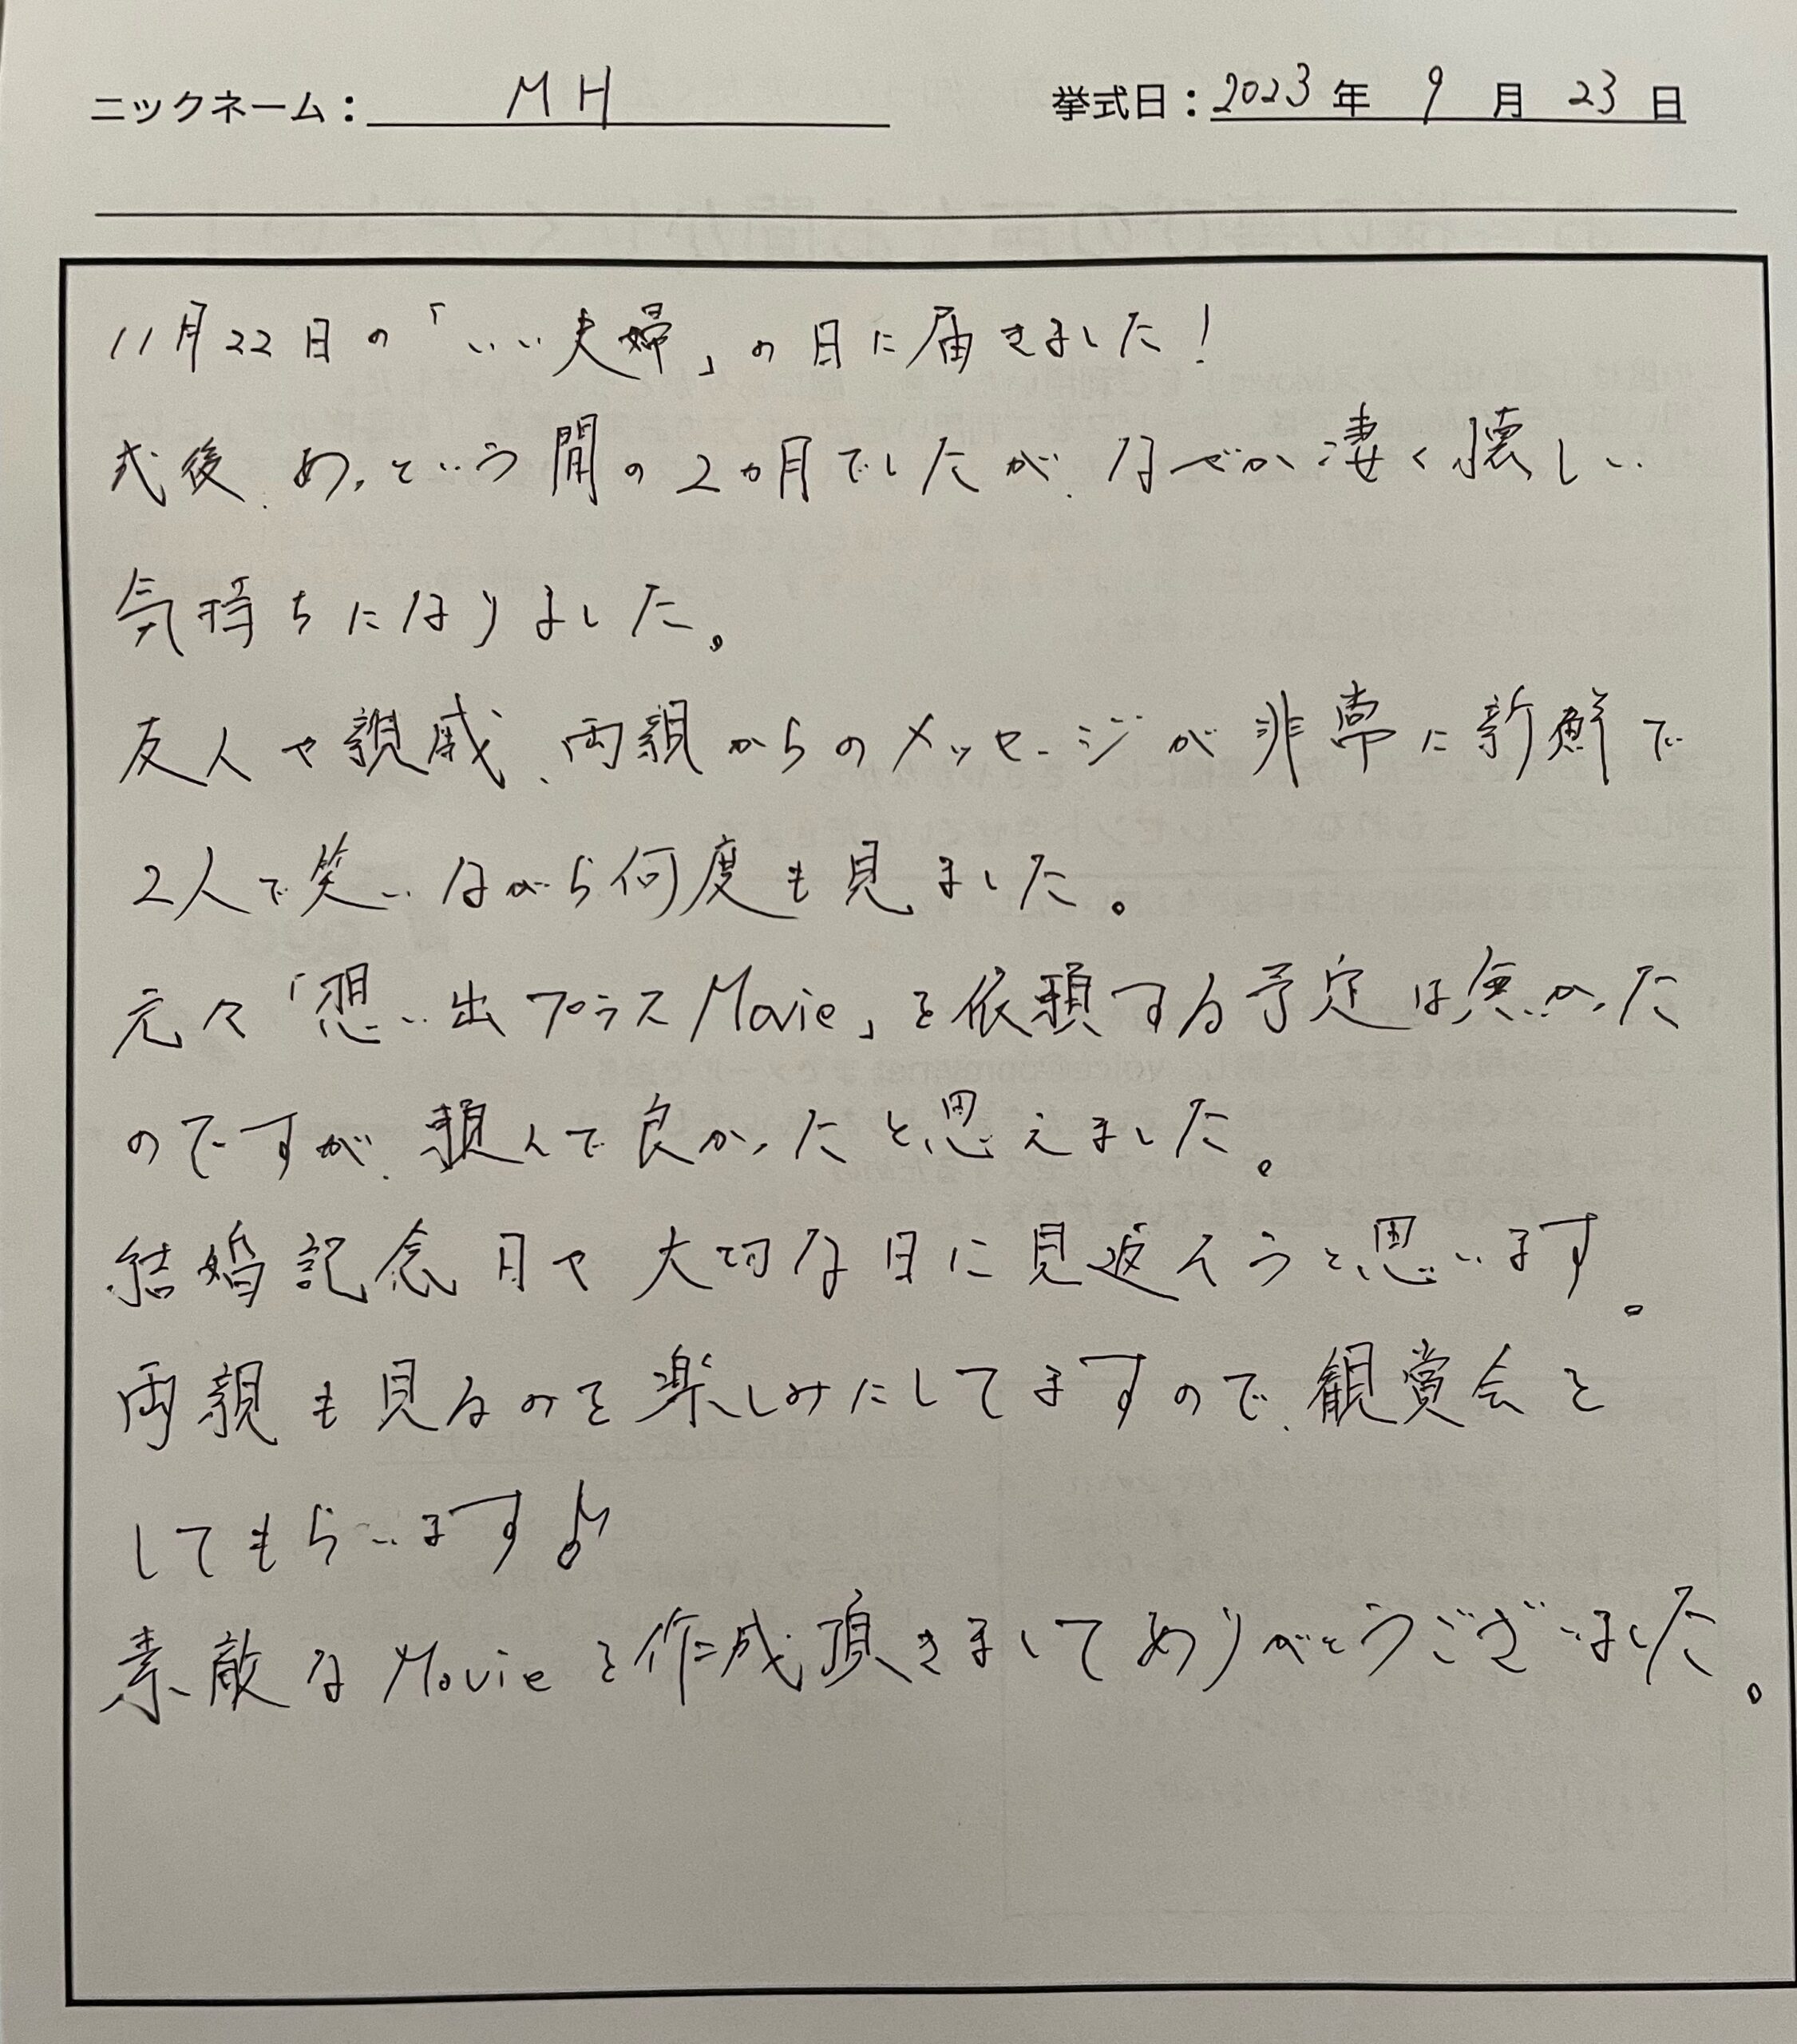 ニックネーム： MH 挙式日：2023年 9月 23日
11月22日の「いい夫婦」の日に届きました！
式後、あっという間の2ヵ月でしたが、なぜか凄く懐しい
気持ちになりました。
友人や親戚、両親からのメッセージが非常に新鮮で
2人で笑いながら何度も見ました。
元々「想い出プラスMovie」を依頼する予定は無かった
のですが、頼んで良かったと思えました。
結婚記念日や大切な日に見返そうと思います。
両親も見るのを楽しみにしてますので、観賞会を
してもらいます♪
素敵なMovieを作成頂きましてありがとうございました。